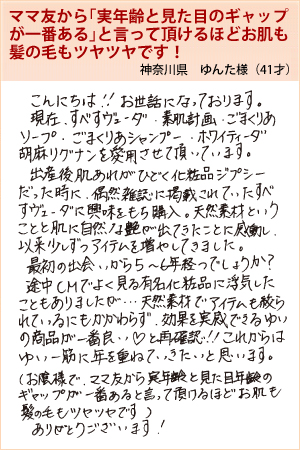 ママ友から「実年齢と見た目のギャップ
が一番ある」と言って頂けるほどお肌も
髪の毛もツヤツヤです！
神奈川県　ゆんた様（41才）
こんにちは!! お世話になっております。
現在、すべすヴェーダ・素肌計画・ごまくりあ
ソープ・ごまくりあシャンプー・ホワイティーダ
胡麻リグナンを愛用させて頂いています。
出産後肌あれがひどく化粧品ジプシー
だった時に、偶然雑誌に掲載されていたすべ
すヴェーダに興味をもち購入。天然素材という
ことと肌に自然な艶が出てきたことに感動し、
以来少しずつアイテムを増やしてきました。
最初の出会いから5～6年経つでしょうか?
途中CMでよく見る有名化粧品に浮気した
こともありましたが…天然素材でアイテムも絞ら
れているにもかかわらず、効果を実感できるゆい
の商品が一番良い♡と再確認!! これからは
ゆい一筋に年を重ねていきたいと思います。
(お陰様で、ママ友から実年齢と見た目年齢の
ギャップが一番あると言って頂けるほどお肌も
髪の毛もツヤツヤです)
ありがとうございます!